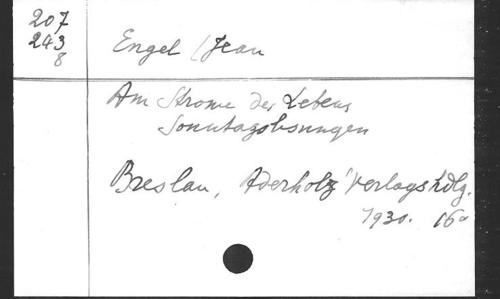 207
243
8
Engel / Jean
Am Strome des Lebens
Sonntagslesungen
Breslau, Aderholz' Verlagshdlg.
1930. 16°